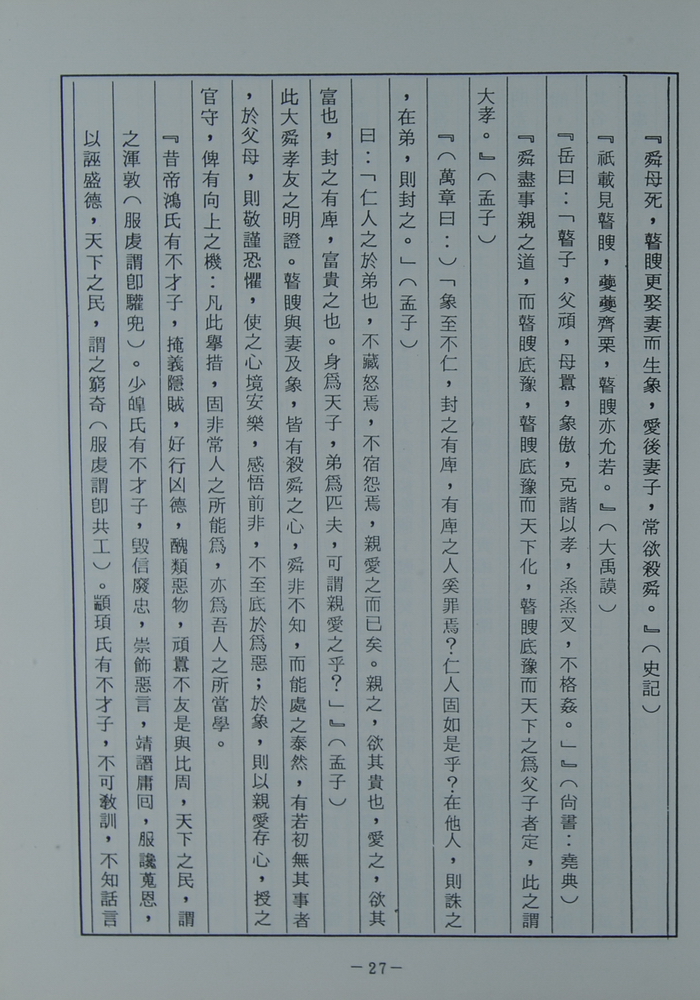 『舜母死，瞽瞍更娶妻而生象，愛後妻子，常欲殺舜。』（史記）
『祇載見瞽瞍，夔夔齊栗，瞽瞍亦允若。』（大禹謨）
『岳曰：「瞽子，父頑，母嚚，象傲，克諧以孝，烝烝叉，不格姦。」』（尚書：堯典）
『舜盡事親之道，而瞽瞍底豫，瞽瞍底豫而天下化，瞽瞍底豫而天下之為父子者定，此之謂
大孝。』（孟子）
『（萬章曰：）「象至不仁，封之有庳，有庳之人奚罪焉？仁人固如是乎？在他人，則誅之
，在弟，則封之。」（孟子）
曰：「仁人之於弟也，不藏怒焉，不宿怨焉，親愛之而已矣。親之，欲其貴也，愛之，欲其
富也，封之有庳，富貴之也。身為天子，弟為匹夫，可謂親愛之乎？」』（孟子）
此大舜孝友之明證。瞽瞍與妻及象，皆有殺舜之心，舜非不知，而能處之泰然，有若初無其事者
，於父母，則敬謹恐懼，使之心境安樂，感悟前非，不至底於為惡；於象，則以親愛存心，授之
官守，俾有向上之機：凡此舉措，固非常人之所能為，亦為吾人之所當學。
『昔帝鴻氏有不才子，掩義隱賊，好行凶德，醜類惡物，頑嚚不友是與比周，天下之民，謂
之渾敦（服虔謂卽驩兜）。少皞氏有不才子，毀信廢忠，崇飾惡言，靖譖庸囘，服讒蒐慝，
以誣盛德，天下之民，謂之窮奇（服虔謂卽共工）。顓頊氏有不才子，不可敎訓，不知話言
－27－